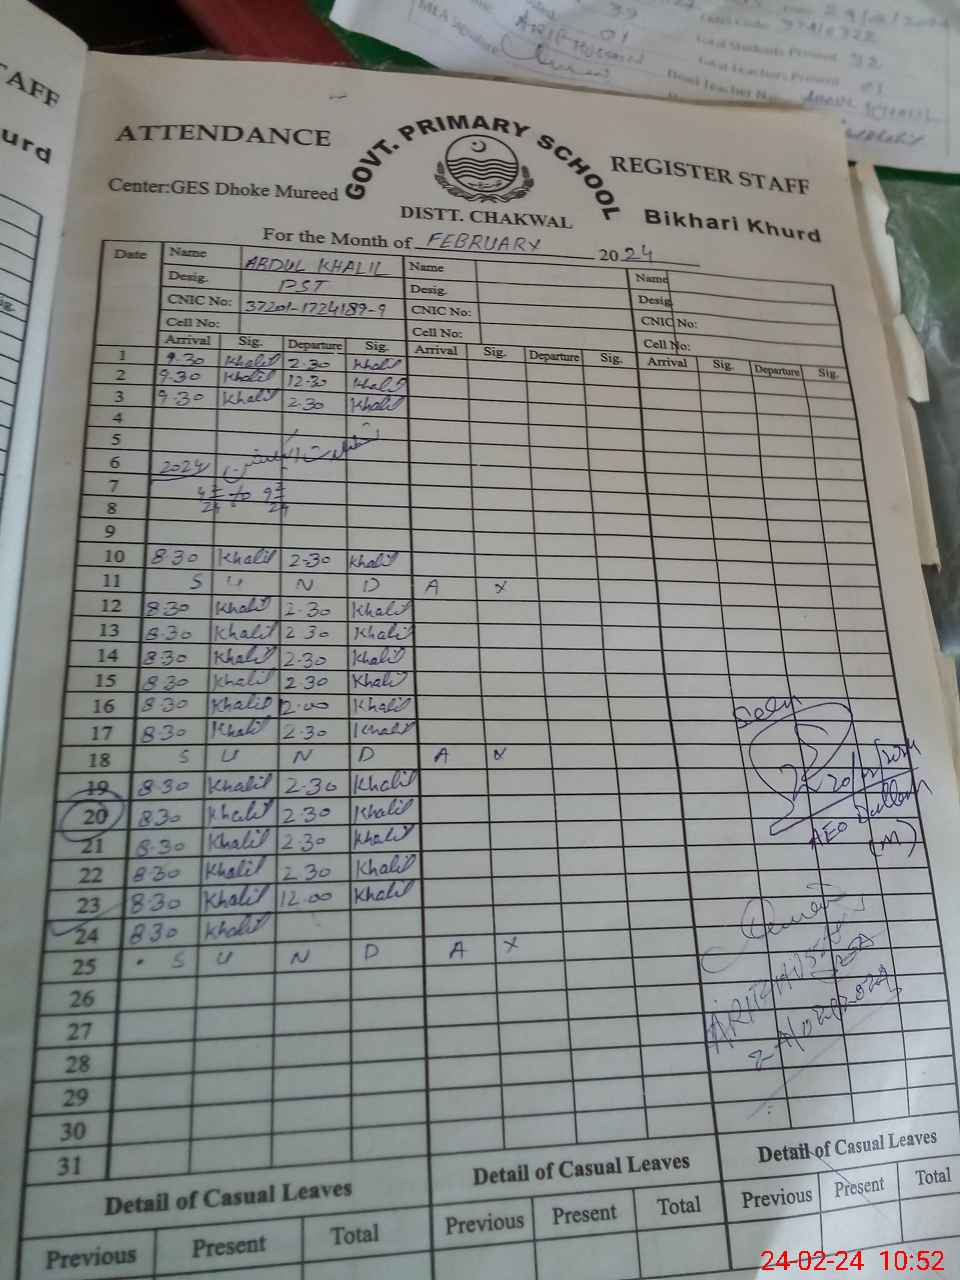 TAFF
urd
37210322
32
01
ATTENDANCE GOVT. PRIMARY SCHOOL REGISTER STAFF
Center:GES Dhoke Mureed DISTT. CHAKWAL Bikhari Khurd
For the Month of FEBRUARY 2024
Date Name ABDUL KHALIL Name Name
Desig. PST Desig. Desig
CNIC No: 37201-1724189-9 CNIC No: CNIC No:
Cell No: Cell No: Cell No:
Arrival Sig. Departure Sig. Arrival Sig. Departure Sig. Arrival Sig. Departure Sig.
1 9.30 Khalil 2.30 Khalil
2 9.30 Khalil 12.30 Khalil
3 9.30 Khalil 2.30 Khalil
4
5
6 2024
7
8
9
10 8.30 Khalil 2-30 Khalil
11 S U N D A Y
12 8.30 Khalil 2.30 Khalil
13 8.30 Khalil 2 30 Khalil
14 8.30 Khalil 2.30 Khalil
15 8.30 Khalil 2.30 Khalil
16 8.30 Khalil 2.00 Khalil
17 8.30 Khalil 2.30 Khalil
18 S U N D A Y
19 8.30 Khalil 2.30 Khalil
20 830 Khalil 2.30 Khalil
21 8.30 Khalil 2.30 Khalil
22 8.30 Khalil 2 30 Khalil
23 8.30 Khalil 12.00 Khalil
24 830 Khalil
25 S U N D A Y
26
27
28
29
30
31
Seen
20/02/2024
AEO Dullah
(M)
Detail of Casual Leaves Detail of Casual Leaves Detail of Casual Leaves
Previous Present Total Previous Present Total Previous Present Total
24-02-24 10:52